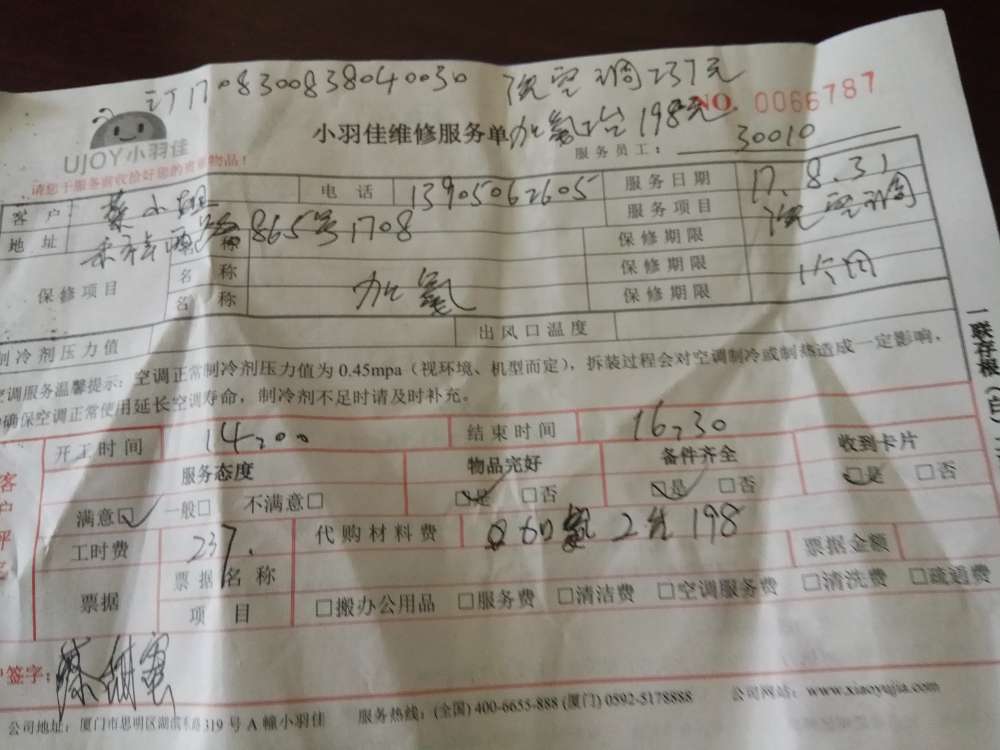 订1708300838040030 洗空调237元
加氟2台198元
NO. 0066787
UJOY小羽佳
小羽佳维修服务单
服务员工： 30010
请您于服务前收拾好您的贵重物品！
客户 蔡小姐 电话 13905062605 服务日期 17.8.31
地址 865号1708 服务项目 洗空调
保修项目 名称 保修期限
名称 加氟 保修期限
名称 保修期限
制冷剂压力值 出风口温度
空调服务温馨提示：空调正常制冷剂压力值为 0.45mpa（视环境、机型而定），拆装过程会对空调制冷或制热造成一定影响，
确保空调正常使用延长空调寿命，制冷剂不足时请及时补充。
一联存根（白）
开工时间 14:00 结束时间 16:30
服务态度 物品完好 备件齐全 收到卡片
满意☑ 一般□ 不满意□ ☑是 □否 ☑是 □否 ☑是 □否
工时费 237. 代购材料费 加氟2台198 票据金额
票据 票据名称
项目 □搬办公用品 □服务费 □清洁费 □空调服务费 □清洗费 □疏通费
户签字：
公司地址：厦门市思明区湖滨东路319号A幢小羽佳 服务热线：(全国) 400-6655-888 (厦门) 0592-5178888 公司网站：www.xiaoyujia.com